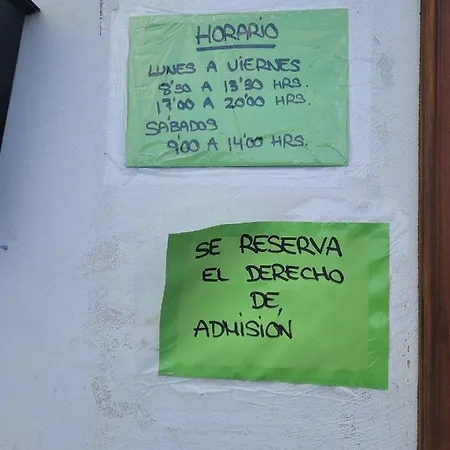 HORARIO
LUNES A VIERNES
8'30 A 13'30 HRS.
17'00 A 20'00 HRS.
SÁBADOS
9'00 A 14'00 HRS.
SE RESERVA
EL DERECHO
DE
ADMISIÓN